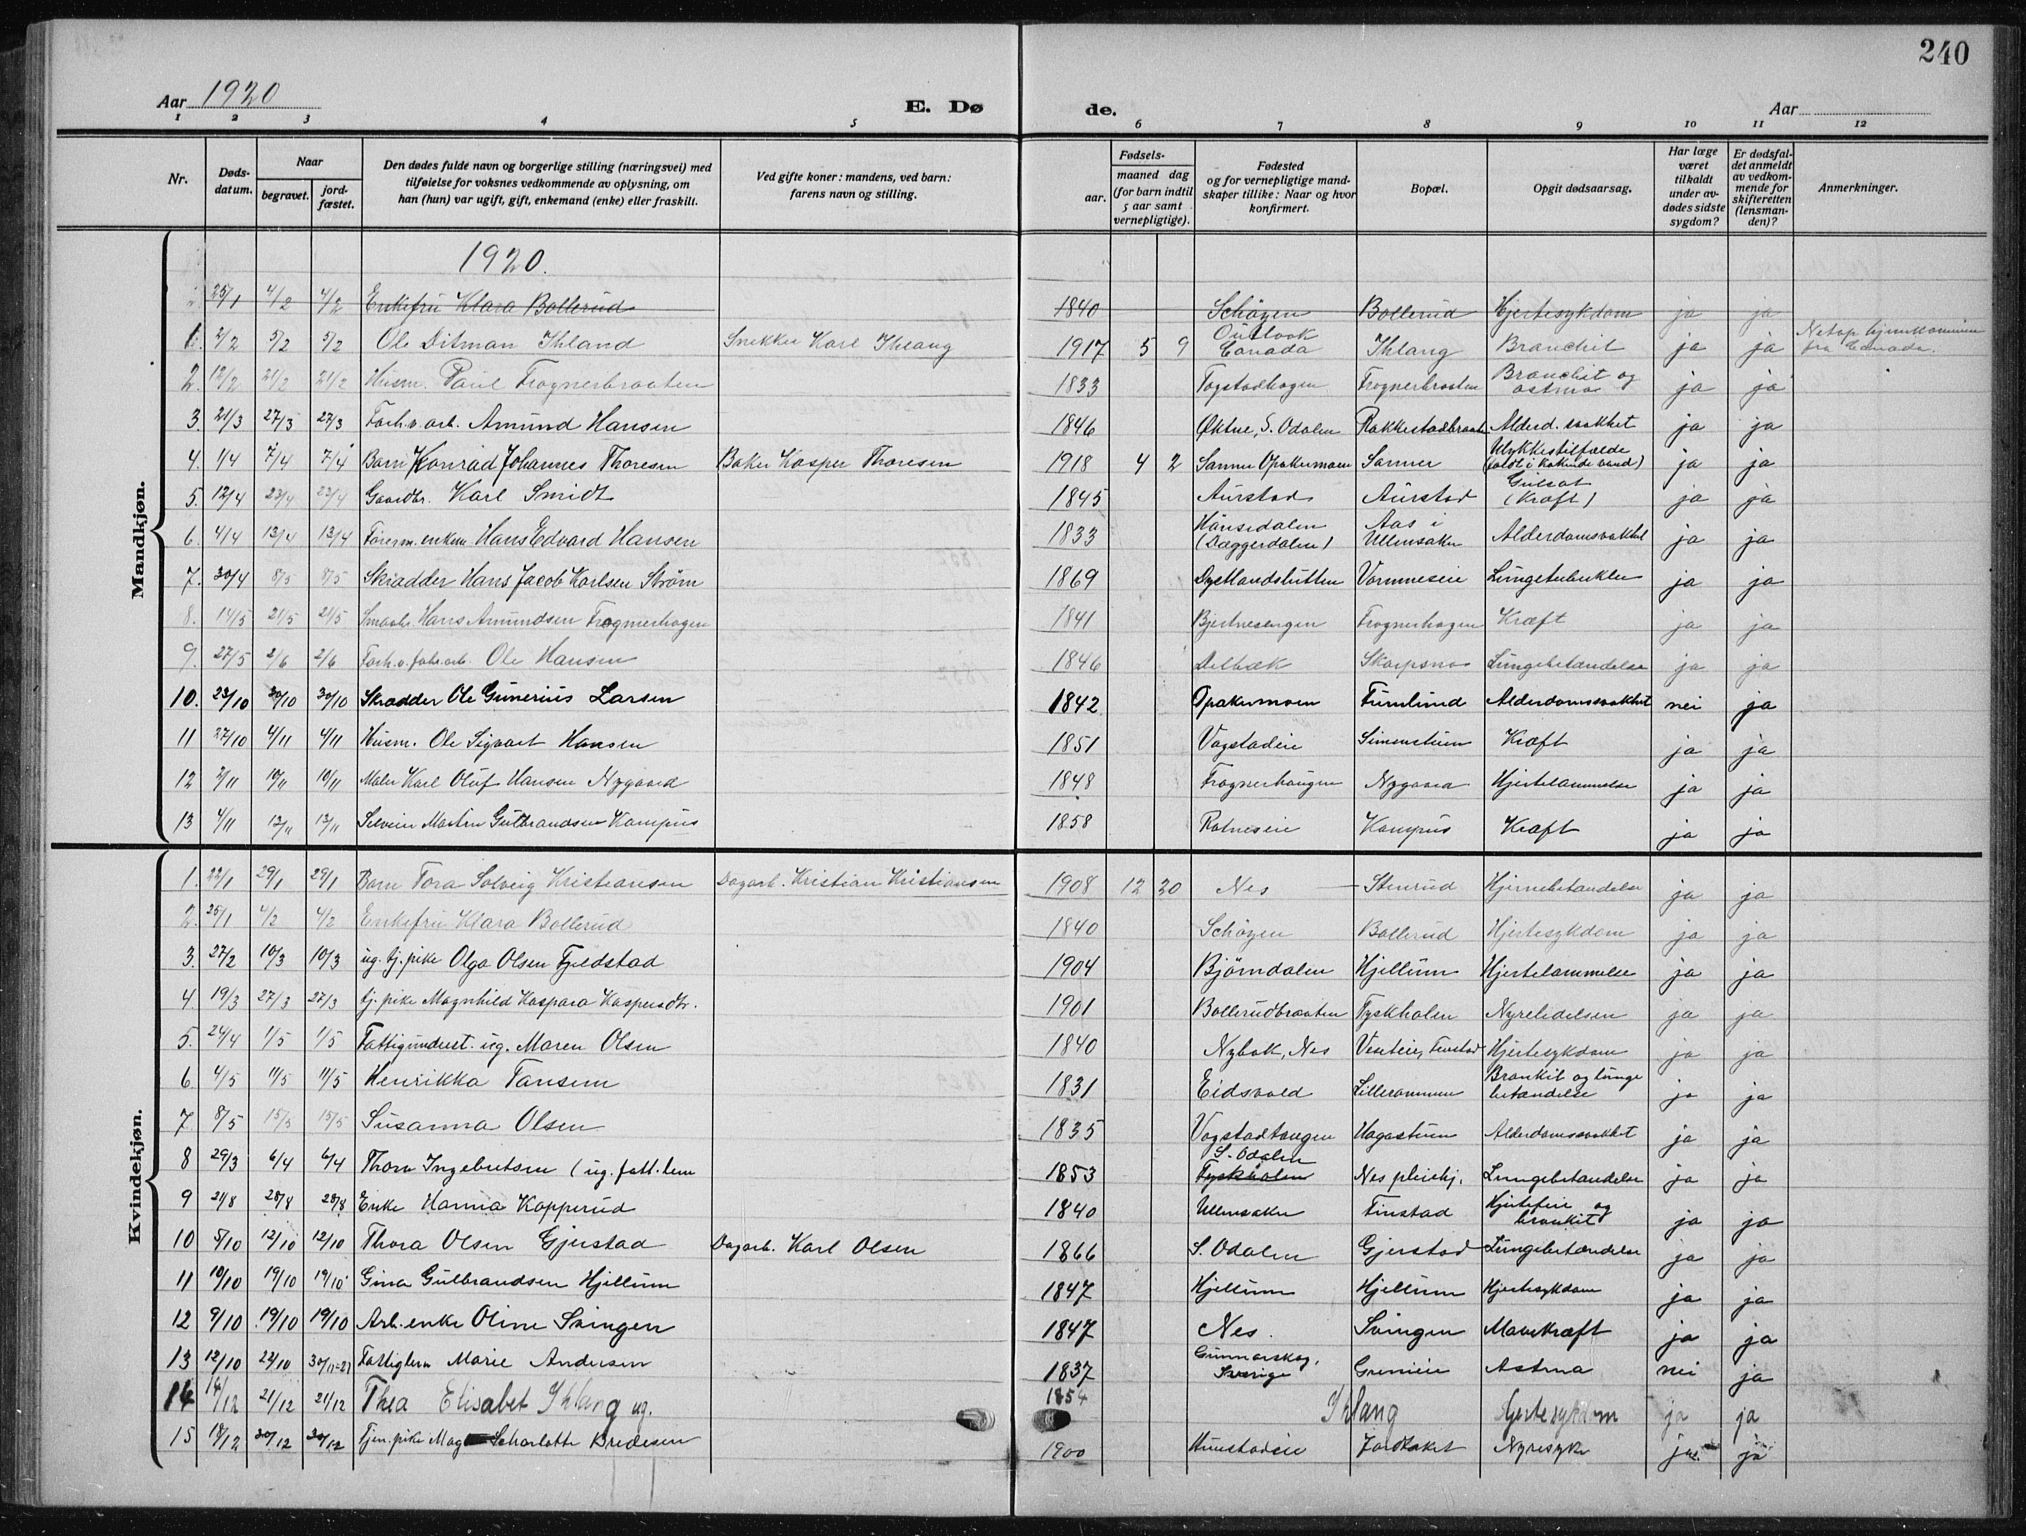 240
Aar 1920
E. Dø de.
Aar
1 2 3 4 5 6 7 8 9 10 11 12
Nr.
Døds-
datum.
Naar
begravet.
jord-
fæstet.
Den dødes fulde navn og borgerlige stilling (næringsvei) med
tilføielse for voksnes vedkommende av oplysning, om
han (hun) var ugift, gift, enkemand (enke) eller fraskilt.
Ved gifte koner: mandens, ved barn:
farens navn og stilling.
Fødsels-
aar.
maaned dag
(for barn indtil
5 aar samt
vernepligtige).
Fødested
og for vernepligtige mand-
skaper tillike: Naar og hvor
konfirmert.
Bopæl.
Opgit dødsaarsag.
Har læge
været
tilkaldt
under av-
dødes sidste
sygdom?
Er dødsfal-
det anmeldt
av vedkom-
mende for
skifteretten
(lensman-
den)?
Anmerkninger.
Mandkjøn.
1920.
25/1 4/2 4/2 Enkefru Klara Bollerud 1840 Schøyen Bollerud Hjertesykdom ja ja
1. 2/2 5/2 5/2 Ole Ditman Ihland Snekker Karl Ihlang 1917 5 9 Outlook Canada Ihlang Bronchit ja ja Netop hjemkommen fra Canada.
2. 12/2 21/2 21/2 Husm. Paul Frognerbraaten 1833 Togstadhagen Frognerbraaten Bronchit og astma ja ja
3. 21/3 27/3 27/3 Forh.v. arb. Amund Hansen 1846 Øktne, S. Odalen Rakkestadbraaten Alderd. svakhet ja ja
4. 1/4 7/4 7/4 Barn Konrad Johannes Thoresen Baker Kasper Thoresen 1918 4 2 Sanner Opakermoen Sanner Ulykkestilfælde (faldt i kokende vand) ja ja
5. 12/4 23/4 23/4 Gaardbr. Karl Smidt 1845 Aurstad Aurstad Gulsot (Kræft) ja ja
6. 4/4 13/4 13/4 Førerm. enkem. Hans Edvard Hansen 1833 Hånsedalen (Dæggerdalen) Aas i Ullensaker Alderdomsvakhet ja ja
7. 30/4 8/5 8/5 Skrædder Hans Jacob Karlsen Strøm 1869 Dystlandshutten Vormneseie Lungetuberkler ja ja
8. 14/5 21/5 21/5 Smaabr. Hans Amundsen Frognerhagen 1841 Bjertnesengen Frognerhagen Kræft ja ja
9. 27/5 2/6 2/6 Forh.v. fabr.arb. Ole Hansen 1846 Delbæk Skarpsno Lungebetændelse ja ja
10. 23/10 30/10 30/10 Skrædder Ole Gunerius Larsen 1842 Opakermoen Furulund Alderdomssvakhet nei ja
11 27/10 4/11 4/11 Husm. Ole Sigvart Hansen 1851 Vogstadeie Simenstuen Kræft ja ja
12 2/11 10/11 10/11 Maler Karl Oluf Hansen Nygaard 1848 Frognerhaugen Nygaard Hjertelammelse ja ja
13 4/11 12/11 12/11 Selveier Martin Gulbrandsen Kampus 1858 Ratneseie Kampus Kræft ja ja
Kvindekjøn.
1. 22/1 29/1 29/1 Barn Tora Solveig Kristiansen Dagarb. Kristian Kristiansen 1908 12 20 Nes Stenrud Hjernebetændelse ja ja
2. 25/1 4/2 4/2 Enkefru Klara Bollerud 1840 Schøyen Bollerud Hjertesykdom ja ja
3. 27/2 10/3 10/3 ug. tj. pike Olga Olsen Fjeldstad 1904 Bjørndalen Hjellum Hjertelammelse ja ja
4. 19/3 27/3 27/3 tj. pike Magnhild Kaspara Kaspersdtr. 1901 Bollerudbraaten Tyskholen Nyrelidelsen ja ja
5. 24/4 1/5 1/5 Fattigunderst. ug. Maren Olsen 1840 Nybak, Nes Finstad Hjertesykdom ja ja
6. 4/5 11/5 11/5 Henrikka Tansem 1831 Eidsvold Lillerommen Bronkit og lunge betændelse ja ja
7 8/5 15/5 15/5 Susanna Olsen 1835 Vogstadtangen Hagastuen Alderdomssvakhet ja ja
8 29/3 6/4 6/4 Thora Ingebretsen (ug. fatt. lem 1853 S. Odalen Tyskholen Nes pleiehj. Lungebetændelse ja ja
9 21/8 28/8 28/8 Enke Hanna Kopperud 1840 Ullensaker Finstad Hjertefeil og bronkit ja ja
10 5/10 12/10 12/10 Thora Olsen Gjerstad Dagarb. Karl Olsen 1866 S. Odalen Gjerstad Lungebetændelse ja ja
11 10/10 19/10 19/10 Gina Gulbrandsen Hjellum 1847 Hjellum Hjellum Hjertesykdom ja ja
12 9/10 19/10 19/10 Arb. enke Oline Svingen 1847 Nes. Svingen Mavekræft ja ja
13 12/10 22/10 30/11-21 Fattiglem Marie Andersen 1837 Gunnarskog, Sverige Greneie Astma nei ja
14 14/12 21/12 21/12 Thea Elisabet Ihlang ug. 1854 Ihlang Hjertesykdom ja ja
15 18/12 30/12 30/12 Tjen. pike Mag Scharlotte Bredesen 1900 Hunstadeie Jordbaket Nyresyke ja ja